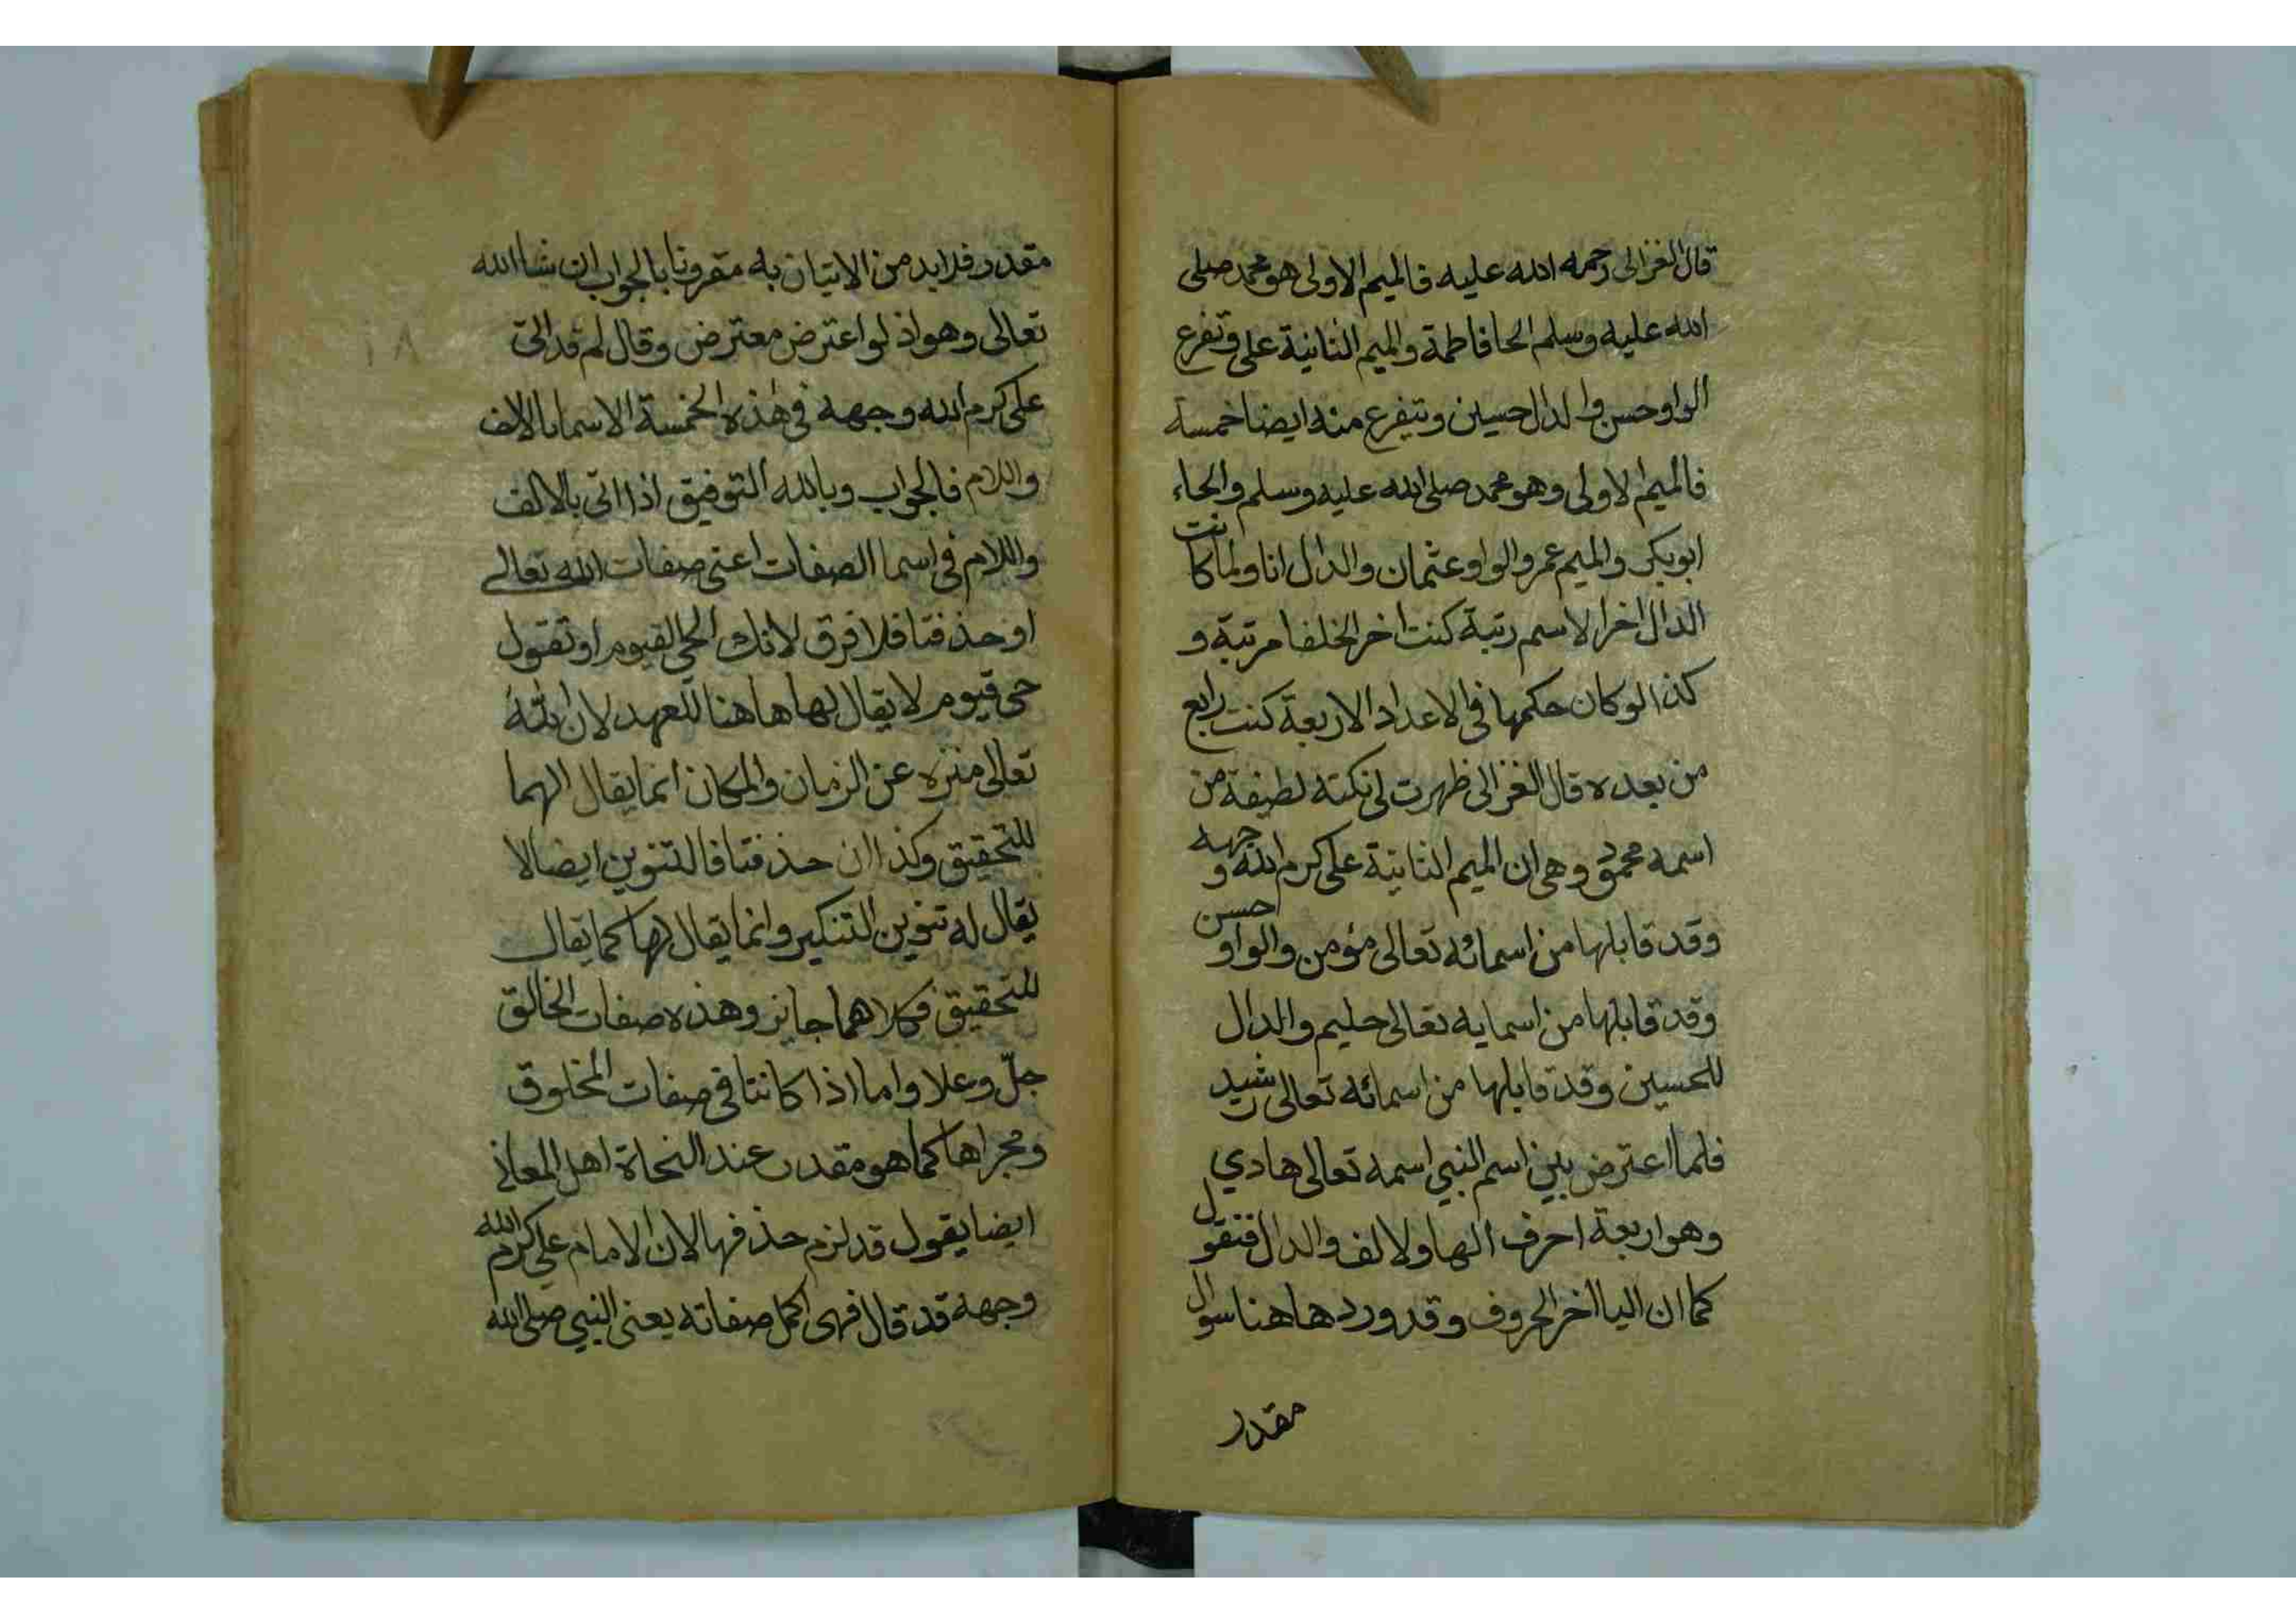 قال الغزالى رحمه الله عليه فالميم الاولى هو محمد صلى
الله عليه وسلم الحا فاطمة والميم الثانية على وتفرع
الواو حسن والدال حسين ويتفرع منه ايضا خمسة
فالميم الاولى وهو محمد صلى الله عليه وسلم والحاء
ابو بكر والميم عمر والواو عثمان والدال انا ولما كانت
الدال اخر الاسم رتبة كنت اخر الخلفا مرتبة و
كذا لو كان حكمها فى الاعداد الاربعة كنت رابع
من بعده قال الغزالى ظهرت لى نكتة لطيفة من
اسمه محمود وهى ان الميم الثانية على كرم الله وجهه
وقد قابلها من اسمائه تعالى مؤمن والواو حسن
وقد قابلها من اسمايه تعالى حليم والدال
للحسين وقد قابلها من اسمائه تعالى رشيد
فلما اعترض بين اسم النبي اسمه تعالى هادي
وهو اربعة احرف الها ولالف والدال فنقول
كما ان اليا اخر الحروف وقد ورد هاهنا سوال
مقدر
مقدر فلابد من الاتيان به مقرونا بالجواب ان شاالله
تعالى وهو اذ لو اعترض معترض وقال لم قد اتى
على كرم الله وجهه فى هذه الخمسة الاسما بالالف
واللام فالجواب وبالله التوفيق اذا اتى بالالف
واللام فى اسما الصفات اعنى صفات الله تعالى
او حذفتا فلا فرق لانك الحى القيوم او تقول
حى قيوم لا يقال لها هاهنا للعهد لان الله
تعالى منزه عن الزمان والمكان انما يقال الهما
للتحقيق وكذا ان حذفتا فالتنوين ايضا لا
يقال له تنوين التنكير وانما يقال لها كما يقال
للتحقيق فكلاهما جايز وهذه صفات الخالق
جلّ وعلا واما اذا كانتا فى صفات المخلوق
ومجراها كما هو مقدر عند النحاة اهل المعانى
ايضا يقول قد لزم حذفها لان الامام على كرم الله
وجهه قد قال فهى اكمل صفاته يعنى النبي صلى الله